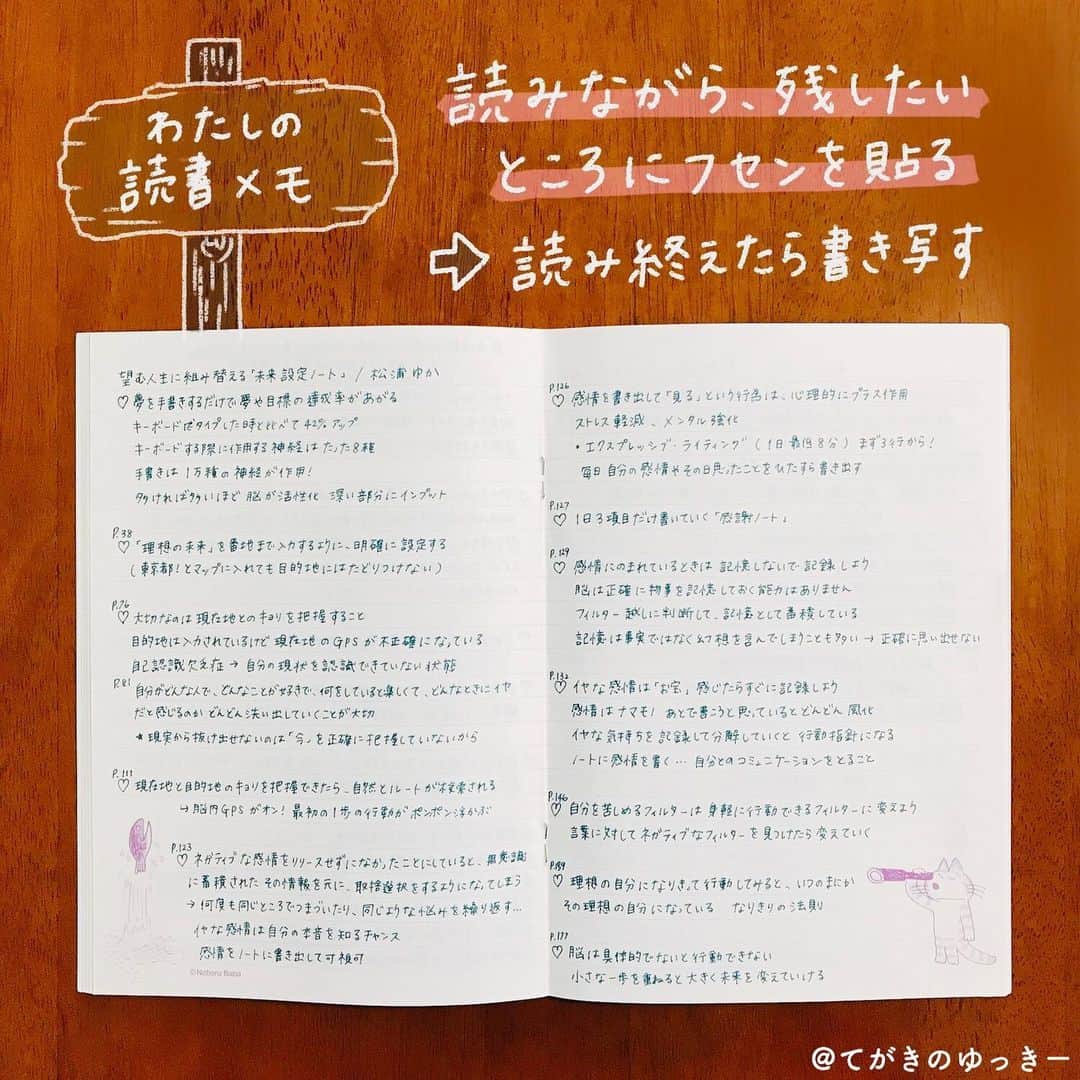 わたしの
読書メモ
読みながら、残したい
ところにフセンを貼る
⇨ 読み終えたら書き写す
望む人生に組み替える「未来設定ノート」 / 松浦ゆか
♡ 夢を手書きするだけで夢や目標の達成率があがる
キーボードでタイプした時と比べて42%アップ
キーボードする際に作用する神経はたった8種
手書きは1万種の神経が作用!
多ければ多いほど脳が活性化 深い部分にインプット
P.38
♡ 「理想の未来」を番地まで入力するように、明確に設定する
(東京都!とマップに入れても目的地にはたどりつけない)
P.76
♡ 大切なのは現在地とのキョリを把握すること
目的地は入力されているけど現在地のGPSが不正確になっている
自己認識欠乏症 → 自分の現状を認識できていない状態
P.81 自分がどんな人で、どんなことが好きで、何をしていると楽しくて、どんなときにイヤ
だと感じるのかどんどん洗い出していくことが大切
★ 現実から抜け出せないのは「今」を正確に把握していないから
P.111
♡ 現在地と目的地のキョリを把握できたら、自然とルートが検索される
→ 脳内GPSがオン! 最初の1歩の行動がポンポン浮かぶ
P.123
♡ ネガティブな感情をリリースせずになかったことにしていると、無意識
に蓄積されたその情報を元に、取捨選択をするようになってしまう
→ 何度も同じところでつまづいたり、同じような悩みを繰り返す…
イヤな感情は自分の本音を知るチャンス
感情をノートに書き出して可視可
©Noboru Baba
P.126
♡ 感情を書き出して「見る」という行為は、心理的にプラス作用
ストレス軽減、メンタル強化
・エクスプレッシブ・ライティング (1日最低8分) まず3行から!
毎日自分の感情やその日思ったことをひたすら書き出す
P.127
♡ 1日3項目だけ書いていく「感謝ノート」
P.129
♡ 感情にのまれているときは記憶しないで記録しよう
脳は正確に物事を記憶しておく能力はありません
フィルター越しに判断して、記憶として蓄積している
記憶は事実ではなく幻想を含んでしまうことも多い → 正確に思い出せない
P.132
♡ イヤな感情は「お宝」感じたらすぐに記録しよう
感情はナマモノ あとで書こうと思っているとどんどん風化
イヤな気持ちを記録して分解していくと行動指針になる
ノートに感情を書く… 自分とのコミュニケーションをとること
P.146
♡ 自分を苦しめるフィルターは身軽に行動できるフィルターに変えよう
言葉に対してネガティブなフィルターを見つけたら変えていく
♡ 理想の自分になりきって行動してみると、いつのまにか
その理想の自分になっている なりきりの法則
♡ 脳は具体的でないと行動できない
小さな一歩を重ねると大きく未来を変えていける
@てがきのゆっきー